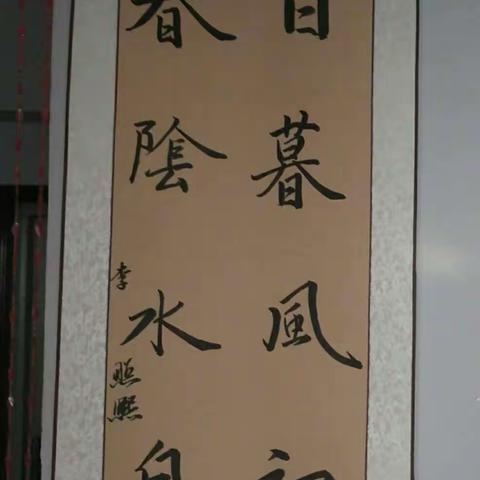 日暮風
春陰水
李照熙